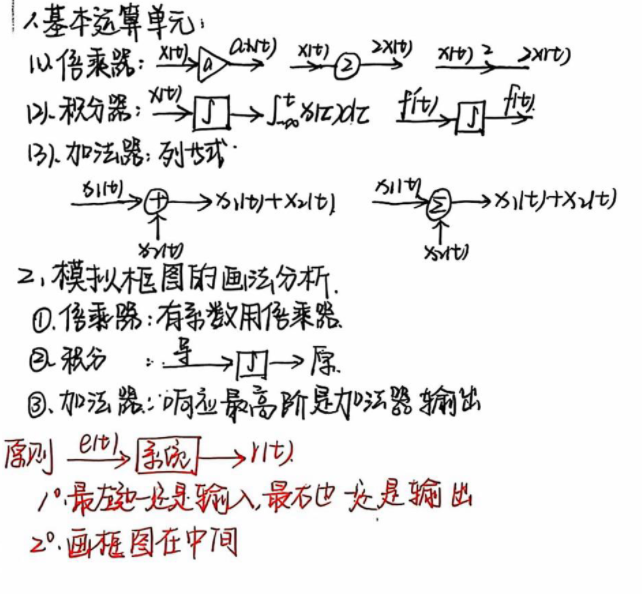 1.基本运算单元:
(1).倍乘器: x(t) a ax(t) x(t) 2 2x(t) x(t) 2 2x(t)
(2).积分器: x(t) ∫ ∫_{-∞}^{t} x(τ)dτ f'(t) ∫ f(t)
(3).加法器: 列方式.
x₁(t) + x₁(t)+x₂(t) x₁(t) Σ x₁(t)+x₂(t)
x₂(t) x₂(t)
2.模拟框图的画法分析.
①.倍乘器:有系数用倍乘器.
②.积分 : 导 ∫ 原.
③.加法器:响应最高阶是加法器输出
原则 e(t) 系统 r(t).
1°.最左边一定是输入,最右边一定是输出
2°.画框图在中间